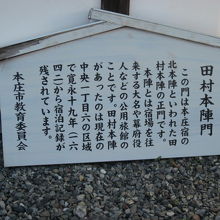 田村本陣門
この門は本庄宿の田村本陣の正門です。
北本陣といわれた田
村本陣の正門です。
本陣とは宿場を往
来する大名や幕府役
人などの公用旅館の
ことです。田村本陣
があったのは現在の
中央一丁目六の区域
で寛永十九年（一六
四二）から宿泊記録が
残されています。
本庄市教育委員会